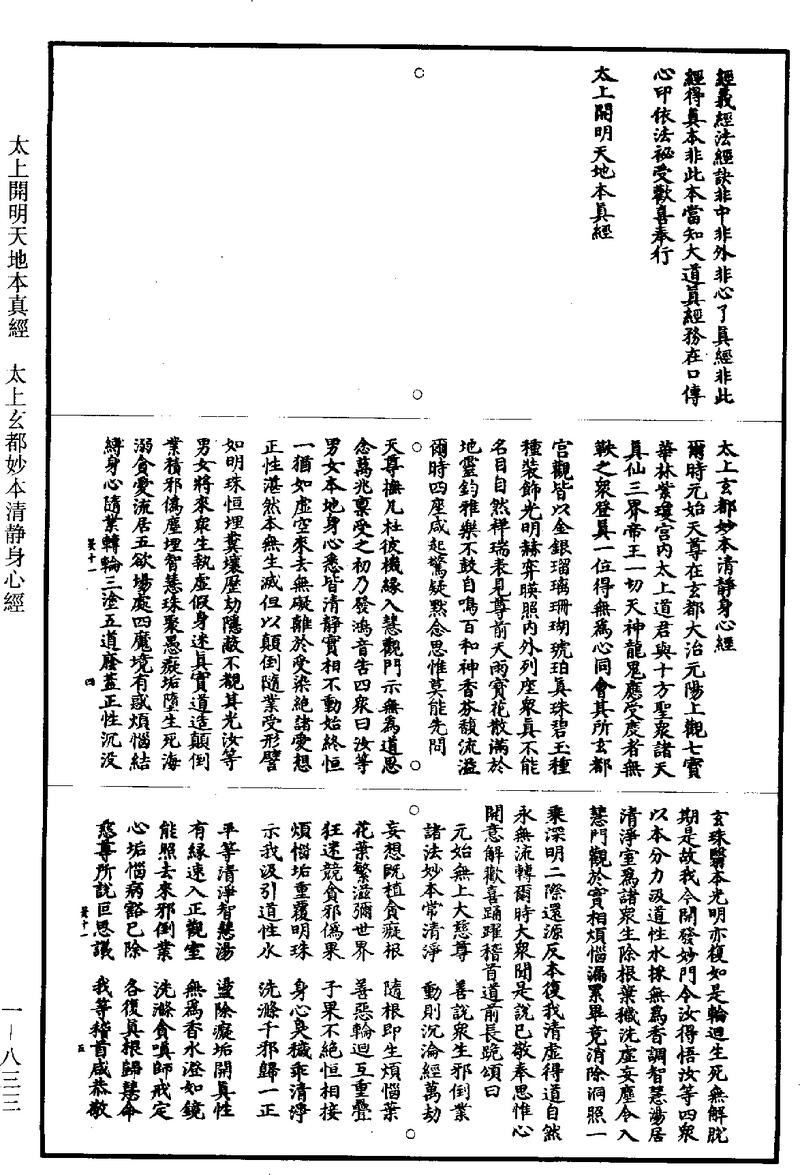 經義經法經訣非中非外非心了真經非此
經得真本非此本當知大道真經務在口傳
心印依法祕受歡喜奉行
太上開明天地本真經
太上玄都妙本清靜身心經
爾時元始天尊在玄都大治元陽上觀七寶
華林紫瓊宮內太上道君與十方聖衆諸天
真仙三界帝王一切天神龍鬼應受度者無
鞅之衆登真一位得無為心同會其所玄都
宮觀皆以金銀瑠璃珊瑚琥珀真珠碧玉種
種裝飾光明赫弈映照內外列座衆真不能
名目自然祥瑞表見尊前天雨寶花散滿於
地靈鈞雅樂不鼓自鳴百和神香芬馥流溢
爾時四座咸起驚疑默念思惟莫能先問
天尊撫几杜彼機緣入慧觀門示無為道思
念萬兆稟受之初乃發鴻音告四衆曰汝等
男女本地身心悉皆清靜實相不動始終恒
一猶如虛空來去無礙離於受染絕諸愛想
正性湛然本無生滅但以顛倒隨業受形譬
如明珠恒埋糞壤歷劫隱蔽不覩其光汝等
男女將來衆生執虛假身迷真實道造顛倒
業積邪僞塵埋智慧珠聚愚癡垢墮生死海
溺貪愛流居五欲場處四魔境有惑煩惱結
縛身心隨業轉輪三塗五道廕蓋正性沉没
玄珠翳本光明亦復如是輪迴生死無解脫
期是故我今開發妙門令汝得悟汝等四衆
以本分力汲道性水採無為香調智慧湯居
清淨室為諸衆生除根棄穢洗虛妄塵令入
慧門觀於實相煩惱漏累畢竟消除洞照一
乘深明二際還源反本復我清虛得道自然
永無流轉爾時大衆聞是說已敬奉思惟心
開意解歡喜踊躍稽首道前長跪頌曰
元始無上大慈尊　善說衆生邪倒業
諸法妙本常清淨　動則沉淪經萬劫
妄想既植貪癡根　隨根即生煩惱葉
花葉繁滋彌世界　善惡輪迴互重疊
狂迷競貪邪僞果　子果不絕恒相接
煩惱垢重覆明珠　身心臭穢乖清淨
示我汲引道性水　洗滌千邪歸一正
平等清淨智慧湯　盪除癡垢開真性
有緣速入正觀室　無為香水澄如鏡
能照去來邪倒業　洗滌貪嗔師戒定
心垢惱病豁已除　各復真根歸慧命
慈尊所說叵思議　我等稽首咸恭敬
四
五
太上開明天地本真經　太上玄都妙本清靜身心經
一－八三三